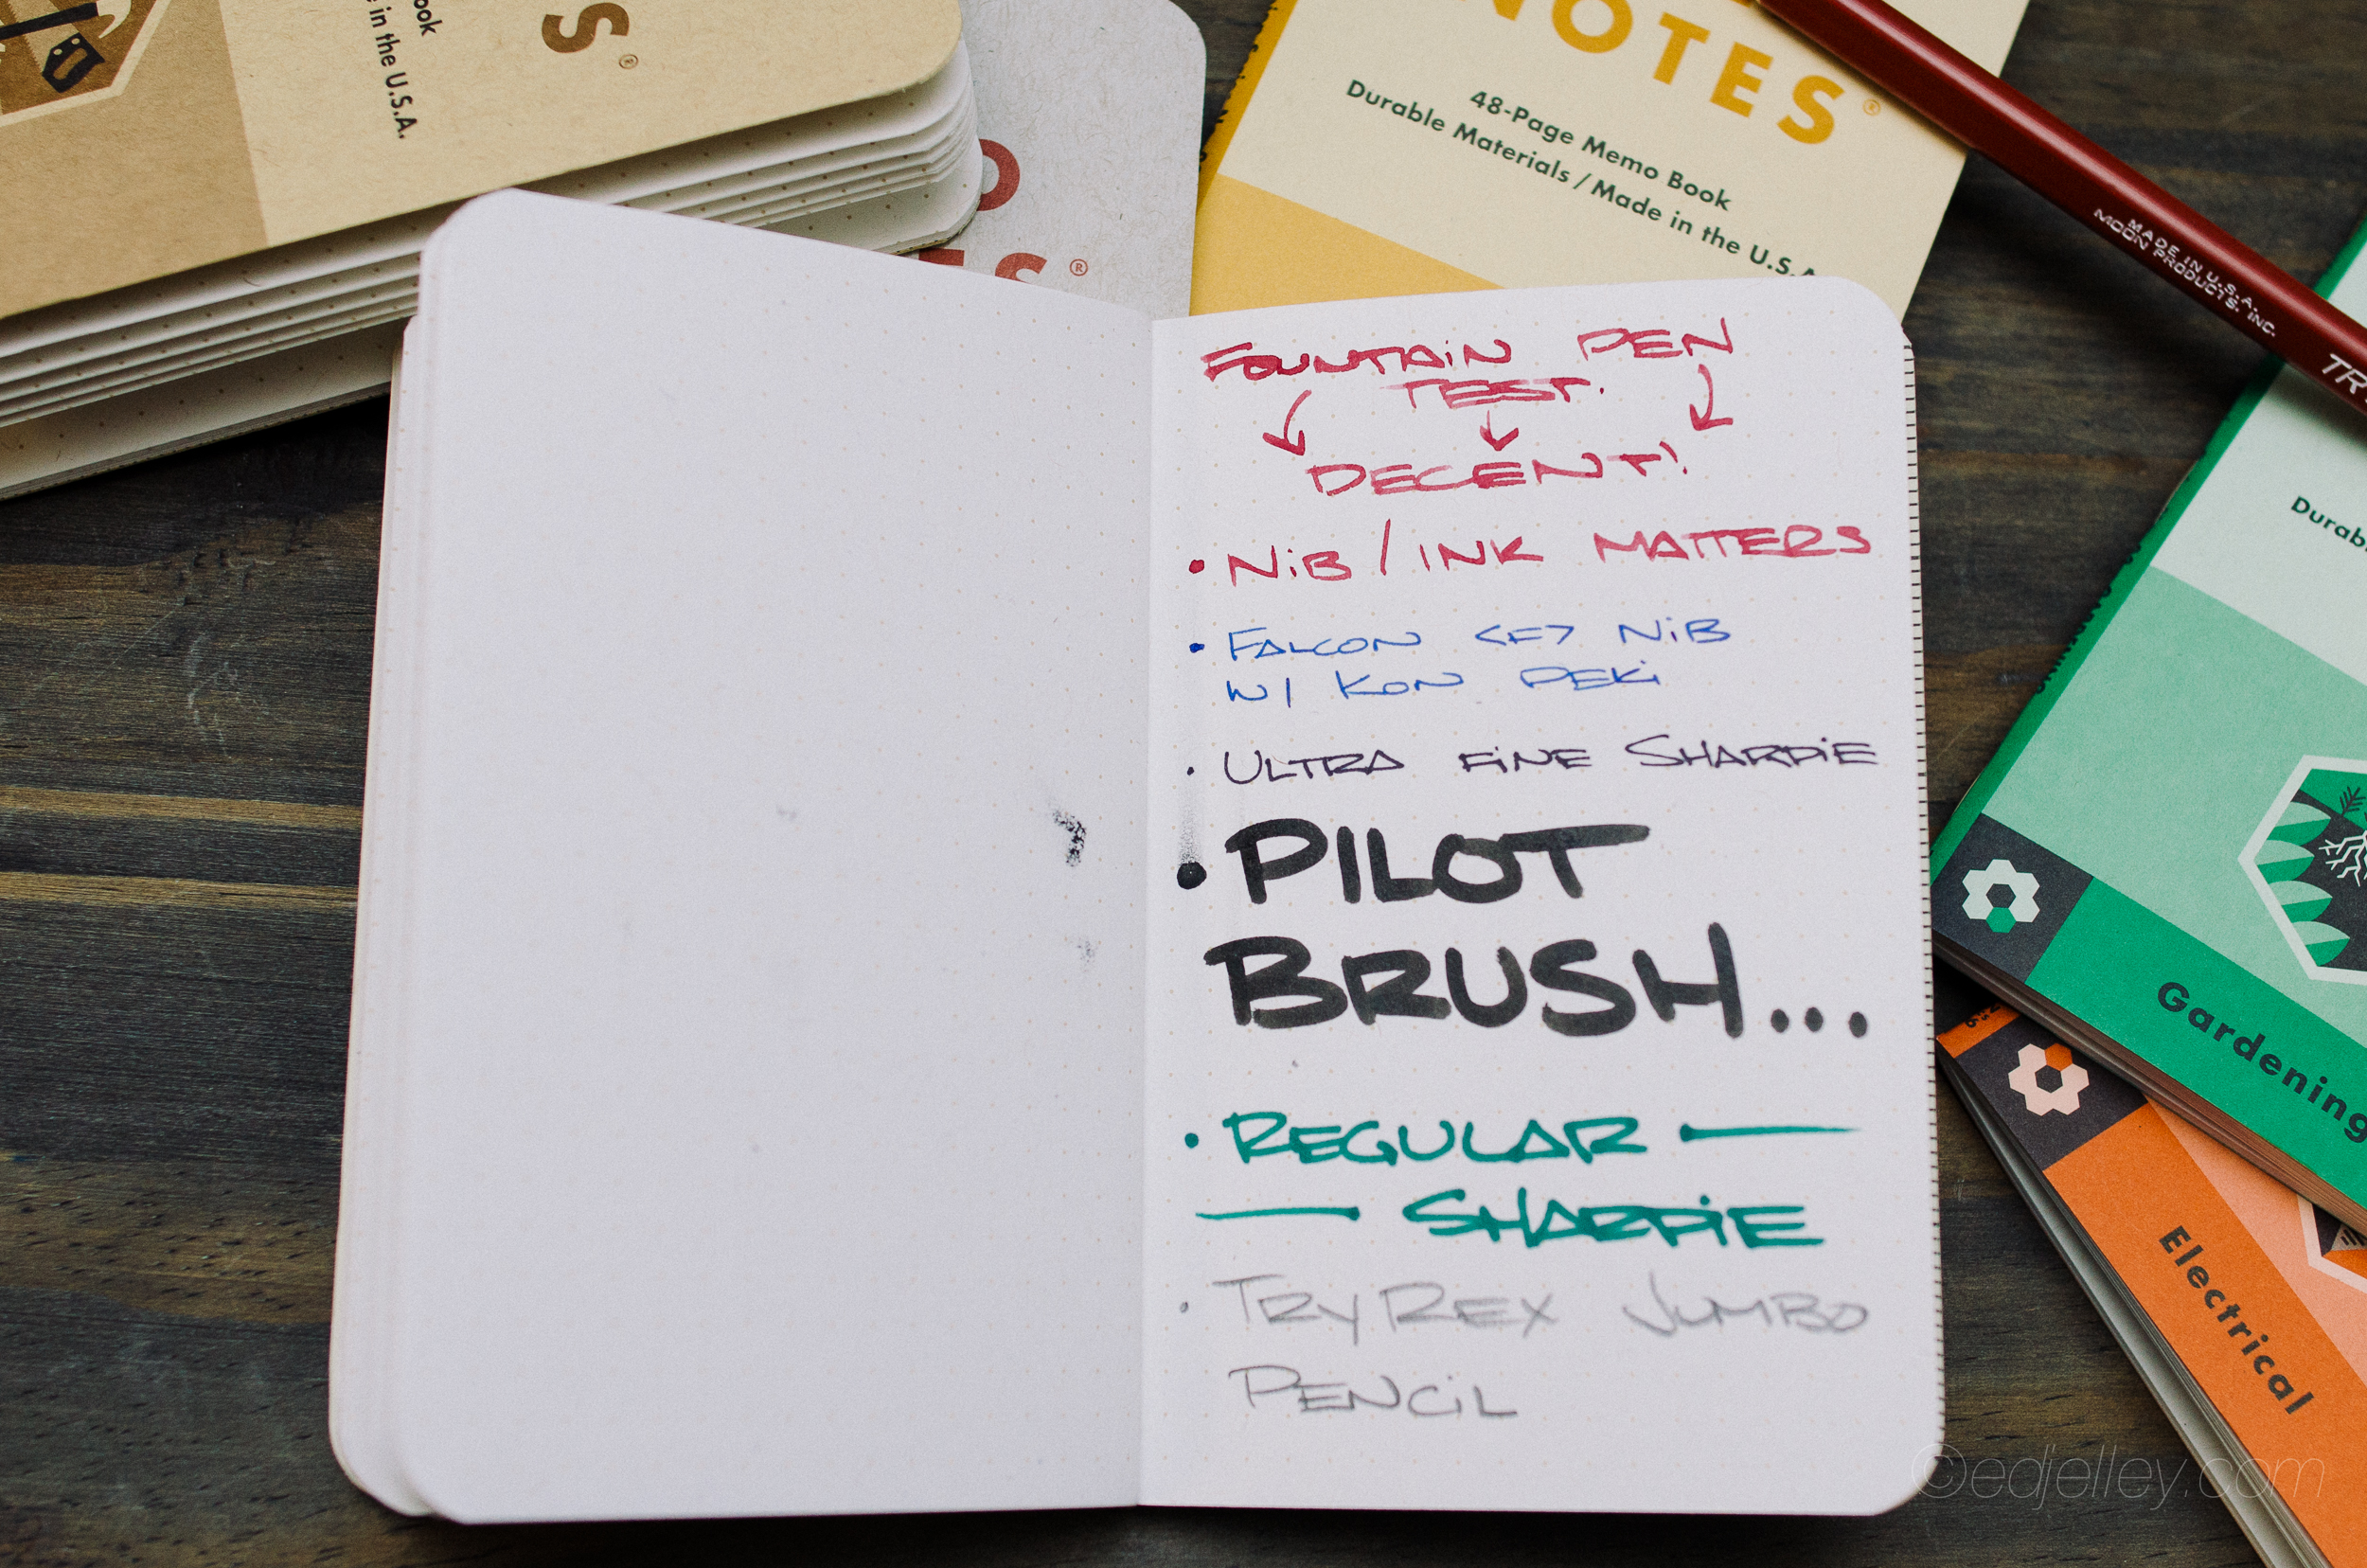 ook
in the U.S.A.
S®
O
ES®
NOTES®
48-Page Memo Book
Durable Materials / Made in the U.S.A
MADE IN U.S.A.
MOON PRODUCTS, INC.
TR
FOUNTAIN PEN
TEST.
DECENT!
• NIB / INK MATTERS
• FALCON <F> NIB
W/ KON PEKI
• ULTRA FINE SHARPIE
• PILOT
BRUSH...
• REGULAR —
— SHARPIE
• TRYREX JUMBO
PENCIL
Durab
Gardening
Electrical
©edjelley.com